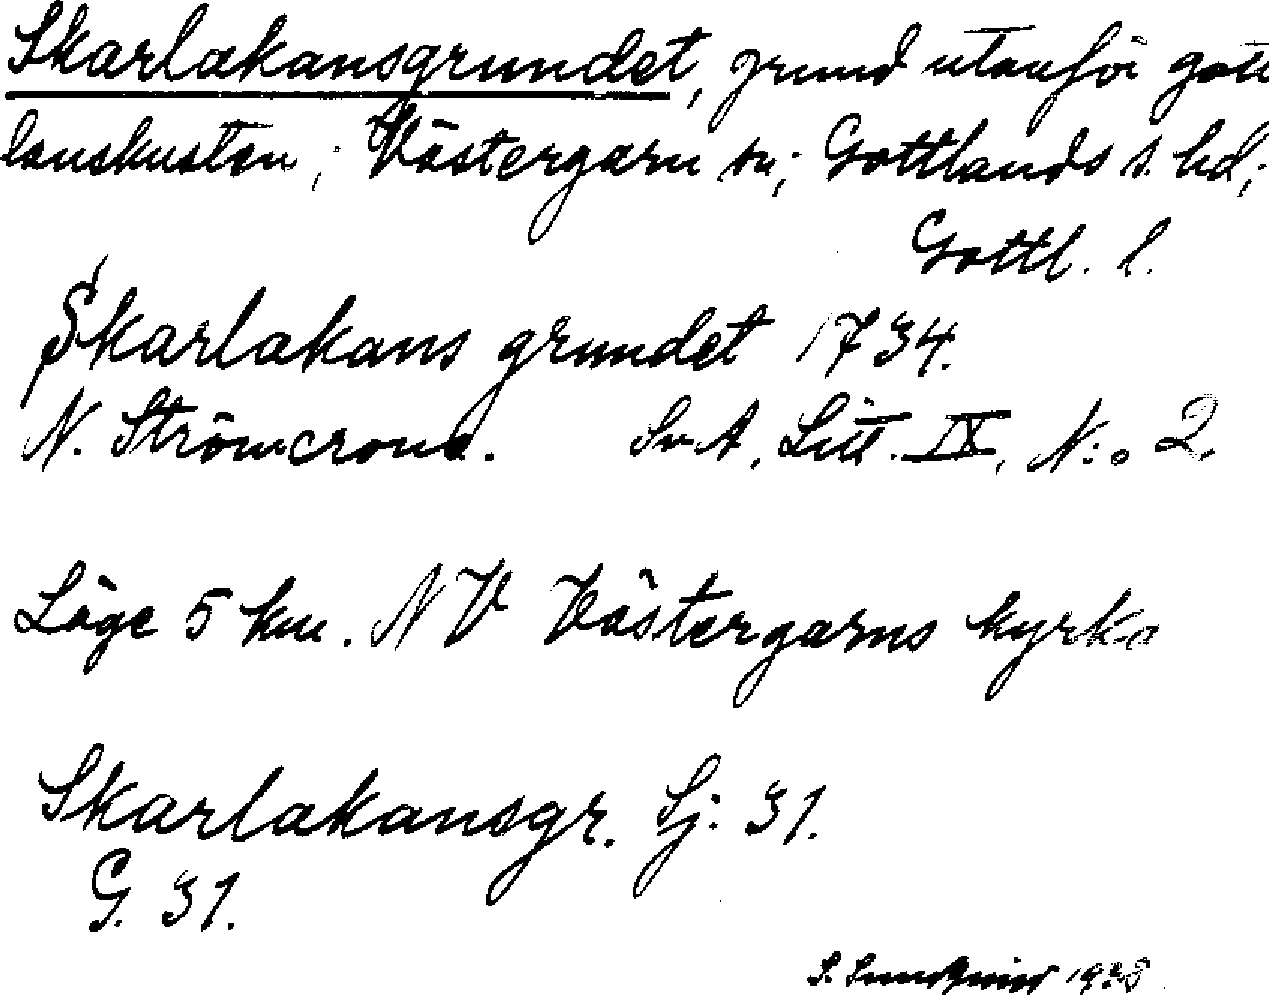 Skarlakansgrundet, grund utanför gott
landskusten; Västergarn sn; Gottlands s. hd;
Gottl. l.
Skarlakans grundet 1734.
N. Strömcrona. SvA, Litt. IX, N:o 2.
Läge 5 km. NV Västergarns kyrka
Skarlakansgr. Sj: 31.
G. 31.
1928